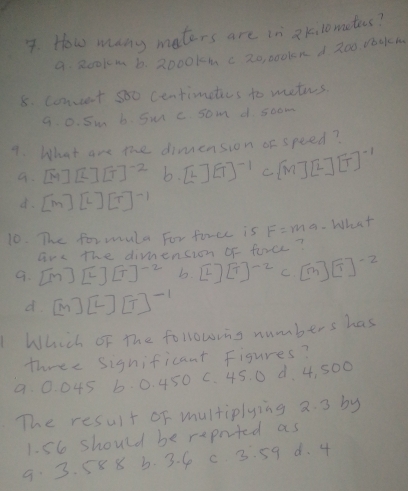 7. How many meters are in 2kilometers?
a. 200km b. 2000km c 20,000km d 200
8. convert 500 centimeters to meters
a. 0.5m b. 5m c. 50m d. 500m
9. What are the dimension of speed?
a. [M][L][T]-2 b. [L][T]-1 c [M][L][T]-1
d. [M][L][T]-1
10. The formula For force is F=ma. What
are the dimension of force?
a. [M][L][T]-2 b. [L][T]-2 c [M][T]-2
d [M][L][T]-1
1 Which of the following numbers has
three significant Figures?
a. 0.045 b. 0.450 c. 45.0 d. 4,500
The result of multiplying 2.3 by
1.56 should be reported as
a. 3.588 b. 3.6 c 3.59 d. 4